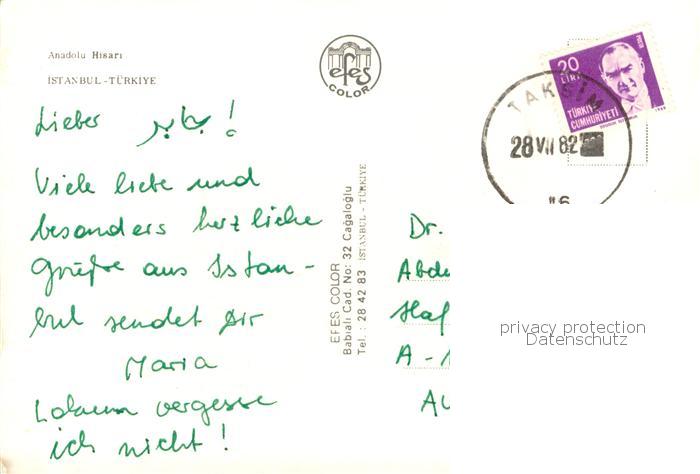 Anadolu Hisarı
İSTANBUL-TÜRKİYE
efes
COLOR
20
LİRA
TÜRKİYE
CUMHURİYETİ
TAKSİM
28 VII 82
Lieber جابر!
Viele liebe und
besonders herzliche
Grüße aus Istan-
bul sendet Dir
Maria
vergesse
ich nicht!
EFES COLOR
Babıali Cad. No: 32 Cağaloğlu
Tel.: 28 42 83 İSTANBUL - TÜRKİYE
Dr.
Abd
Haf
A - 1
AU
privacy protection
Datenschutz